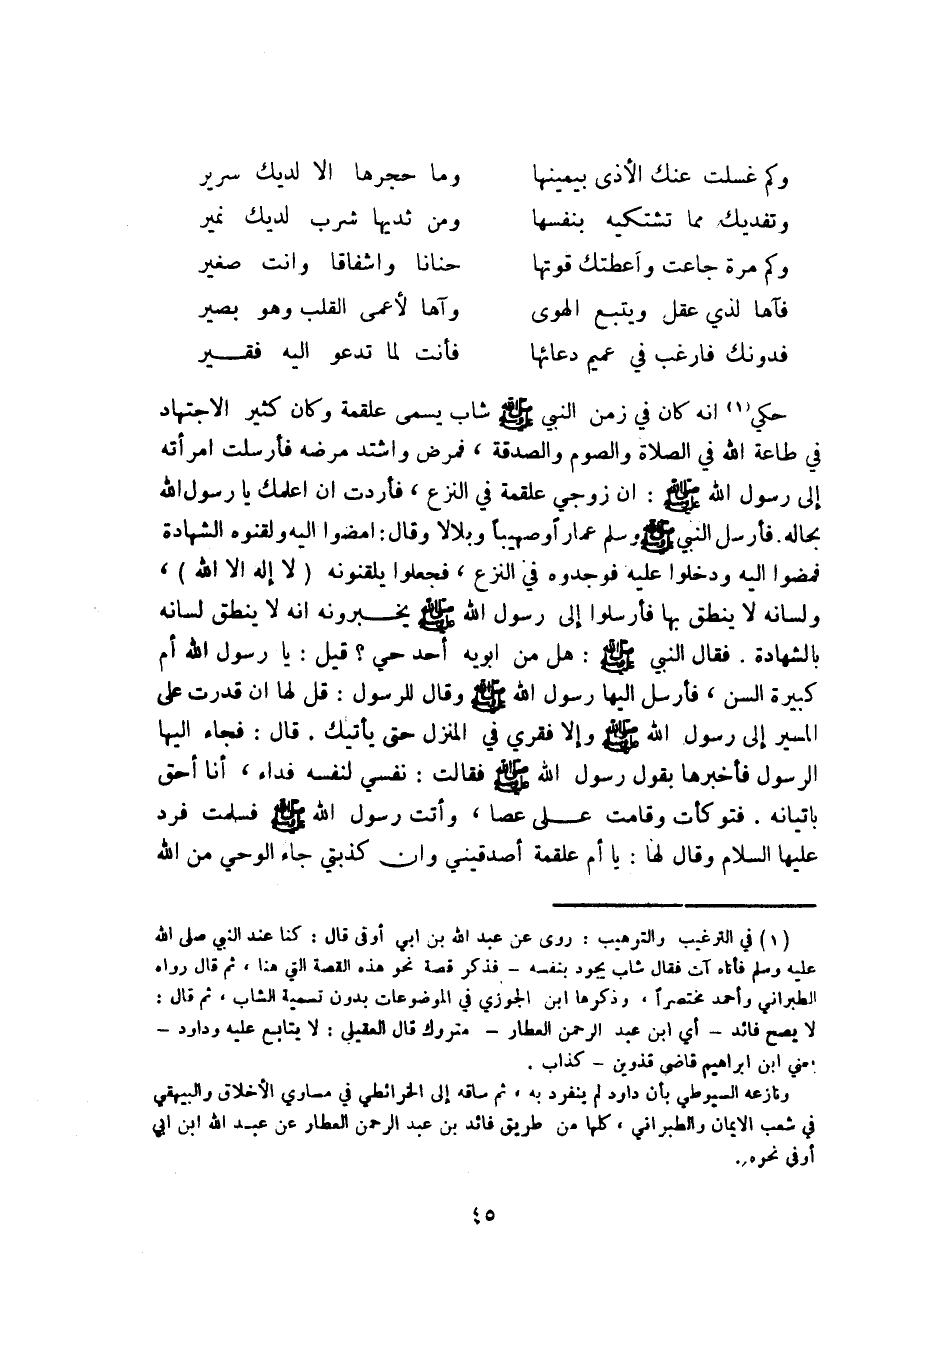 وكم غسلت عنك الأذى بيمينها وما حجرها الا لديك سرير
وتفديك مما تشتكيه بنفسها ومن ثديها شرب لديك نمير
وكم مرة جاعت وأعطتك قوتها حنانا واشفاقا وانت صغير
فآها لذي عقل ويتبع الهوى وآها لأعمى القلب وهو بصير
فدونك فارغب في عميم دعائها فأنت لما تدعو اليه فقـــير
حكي(١) انه كان في زمن النبي ﷺ شاب يسمى علقمة وكان كثير الاجتهاد
في طاعة الله في الصلاة والصوم والصدقة ، فمرض واشتد مرضه فأرسلت امرأته
إلى رسول الله ﷺ : ان زوجي علقمة في النزع ، فأردت ان اعلمك يا رسول الله
بحاله. فأرسل النبي ﷺ وسلم عماراً وصهيباً وبلالا وقال: امضوا اليه ولقنوه الشهادة
فمضوا اليه ودخلوا عليه فوجدوه في النزع ، فجعلوا يلقنونه ( لا إله الا الله ) ،
ولسانه لا ينطق بها فأرسلوا إلى رسول الله ﷺ يخـــبرونه انه لا ينطق لسانه
بالشهادة . فقال النبي ﷺ : هل من ابويه أحد حي ؟ قيل : يا رسول الله أم
كبيرة السن ، فأرسل اليها رسول الله ﷺ وقال للرسول : قل لها ان قدرت على
المسير إلى رسول الله ﷺ وإلا فقري في المنزل حتى يأتيك . قال : فجاء اليها
الرسول فأخبرها بقول رسول الله ﷺ فقالت : نفسي لنفسه فداء ، أنا أحق
باتيانه . فتوكأت وقامت عـــلى عصا ، وأتت رسول الله ﷺ فسلمت فرد
عليها السلام وقال لها : يا أم علقمة أصدقيني وان كذبتي جاء الوحي من الله
(١) في الترغيب والترهيب : روى عن عبد الله بن ابي أوفى قال : كنا عند النبي صلى الله
عليه وسلم فأتاه آت فقال شاب يجود بنفسه – فذكر قصة نحو هذه القصة التي هنا ، ثم قال رواه
الطبراني وأحمد مختصراً ، وذكرها ابن الجوزي في الموضوعات بدون تسمية الشاب ، ثم قال :
لا يصح فائد – أي ابن عبد الرحمن العطار – متروك قال العقيلي : لا يتابع عليه وداود –
يعني ابن ابراهيم قاضي قذوين – كذاب .
ونازعه السيوطي بأن داود لم ينفرد به ، ثم ساقه إلى الخرائطي في مساري الأخلاق والبيهقي
في شعب الايمان والطبراني ، كلها من طريق فائد بن عبد الرحمن العطار عن عبـد الله ابن ابي
أوفى نحوه .
٤٥